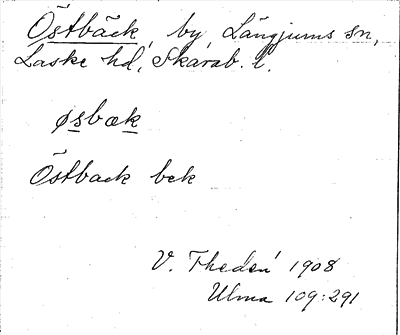 Östbäck, by, Längjums sn,
Laske hd, Skarab. l.
øsbæk
Östback bek
V. Thedén 1908
Ulma 109:291